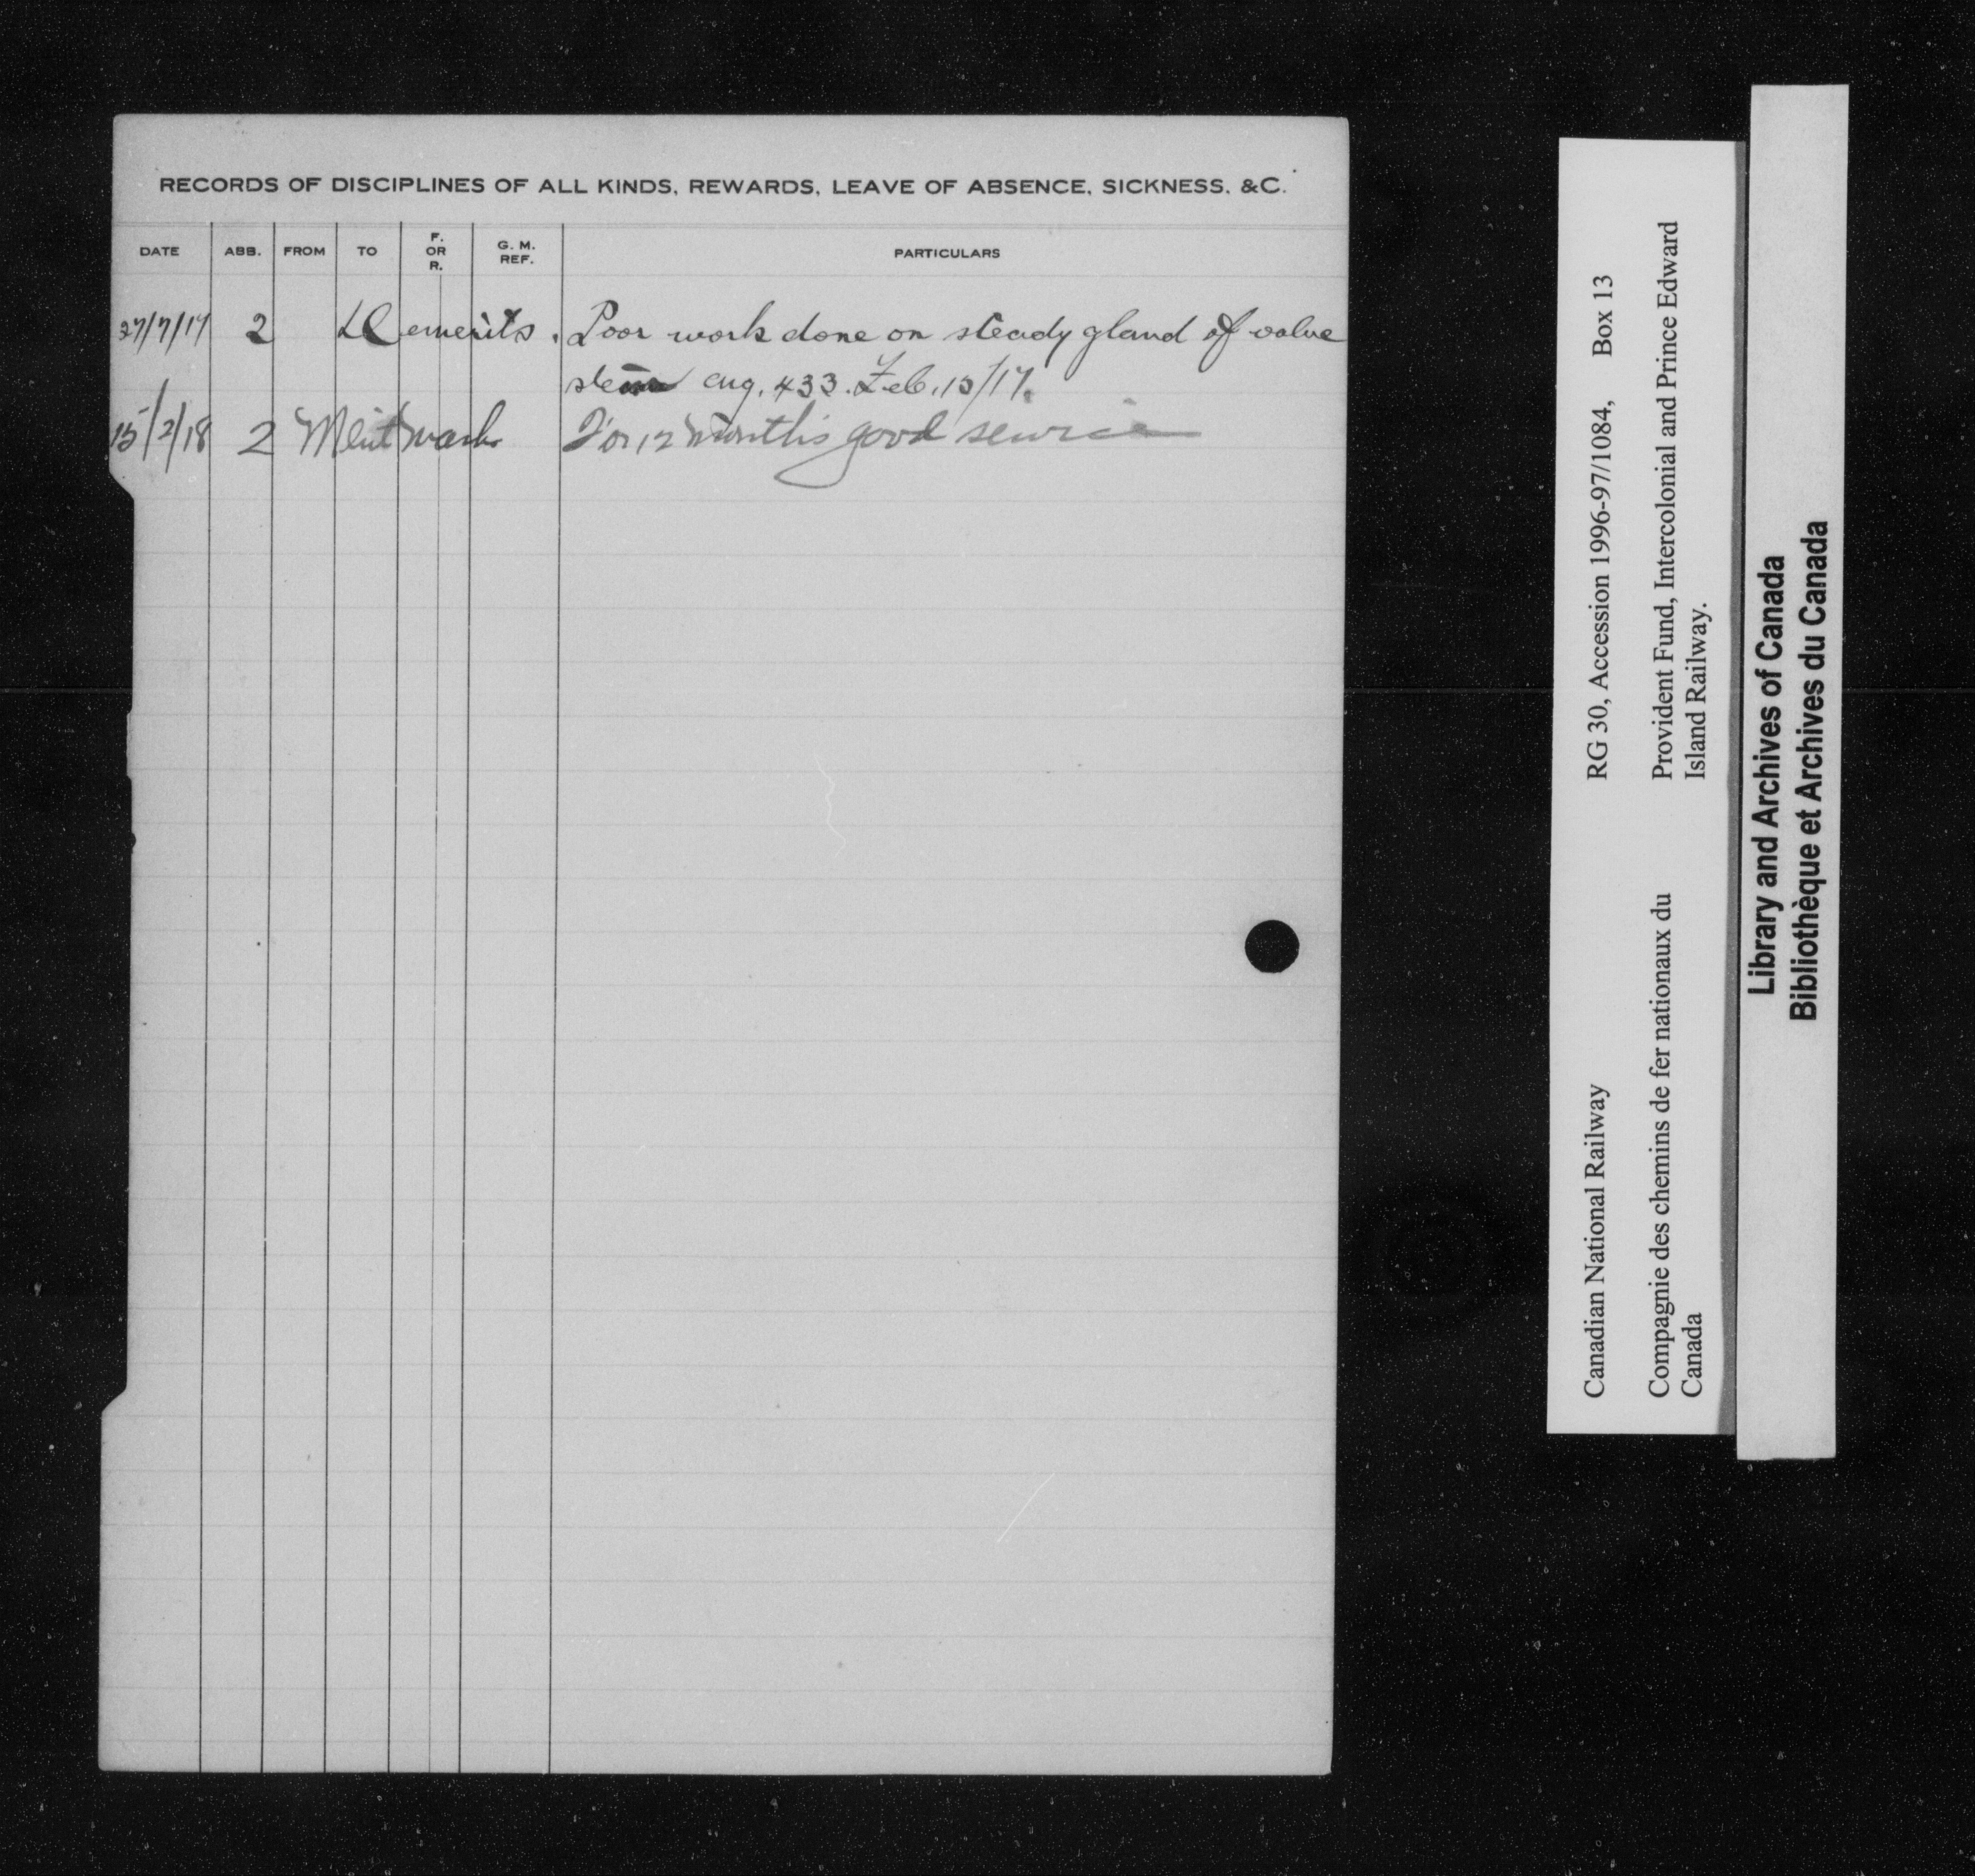 RECORDS OF DISCIPLINES OF ALL KINDS, REWARDS, LEAVE OF ABSENCE, SICKNESS, &C.
DATE ABB. FROM TO F. OR R. G. M. REF. PARTICULARS
27/7/17 2 Demerits. Poor work done on steady gland of valve
stem eng. 433. Feb. 15/17.
15/2/18 2 Merit marks For 12 months good service
Canadian National Railway RG 30, Accession 1996-97/1084, Box 13
Compagnie des chemins de fer nationaux du Provident Fund, Intercolonial and Prince Edward
Canada Island Railway.
Library and Archives of Canada
Bibliothèque et Archives du Canada